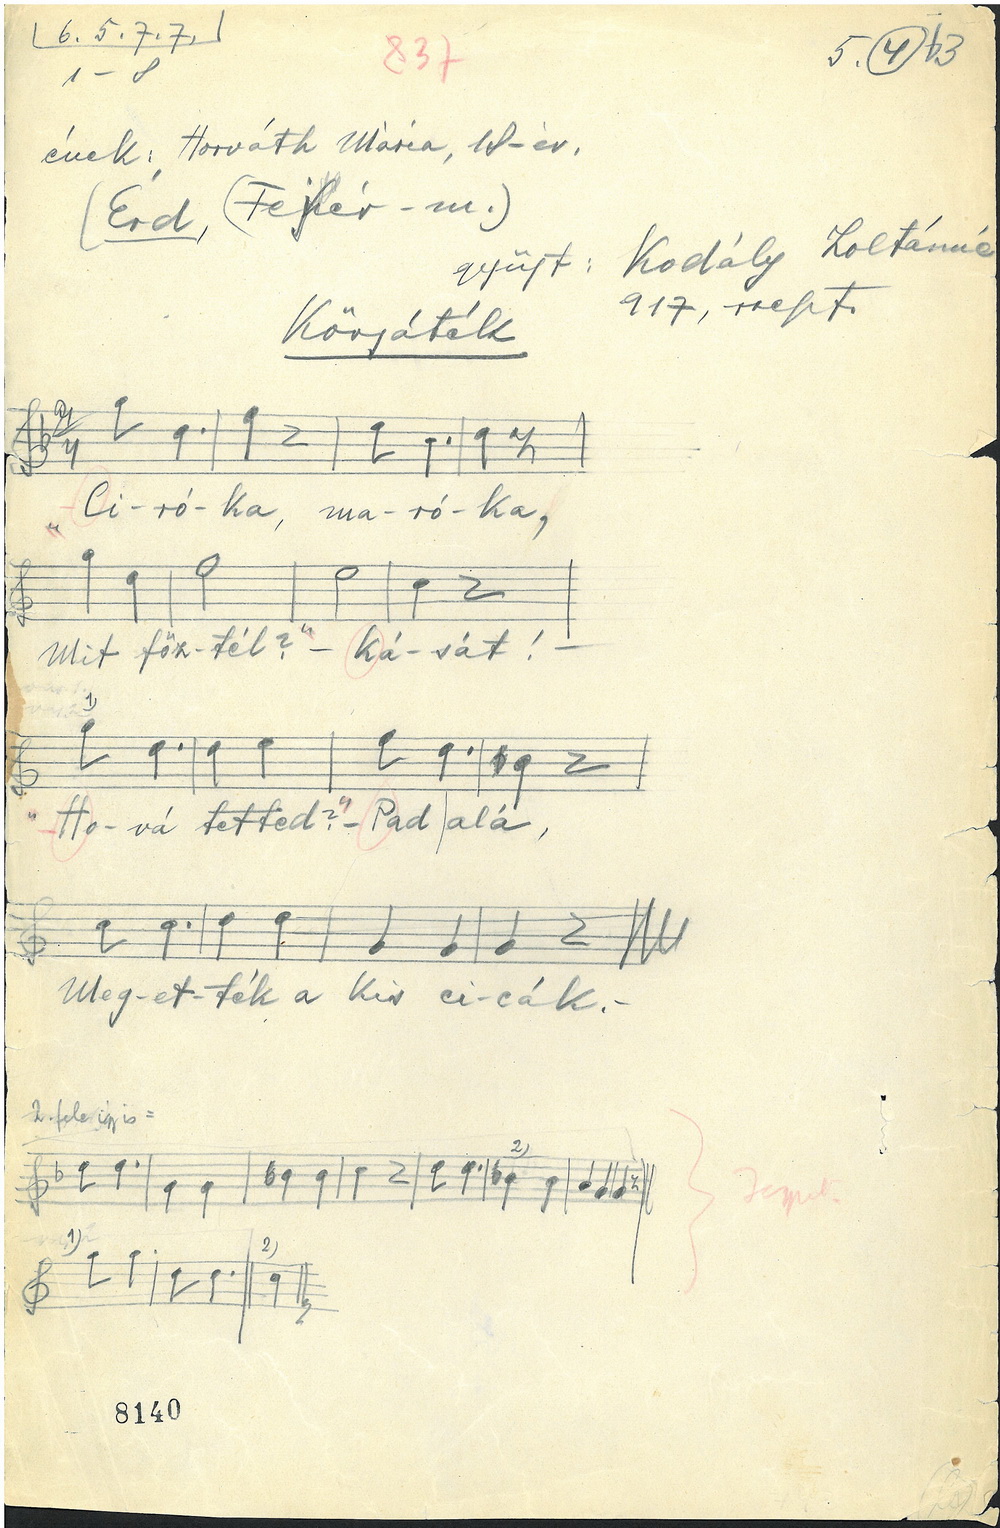 6. 5. 7. 7.
1 - 8
837
5. 4 b3
ének: Horváth Mária, 18 év.
(Érd, (Fejér - m.)
gyűjt: Kodály Zoltánné
917, szept.
Körjáték
2/4
„Ci-ró-ka, ma-ró-ka,
Mit főz-tél?" - Ká-sát! -
1)
"Ho-vá tetted?" - Pad alá,
Meg-et-ték a kis ci-cák. -
2. fele így is =
2)
1) 2)
8140